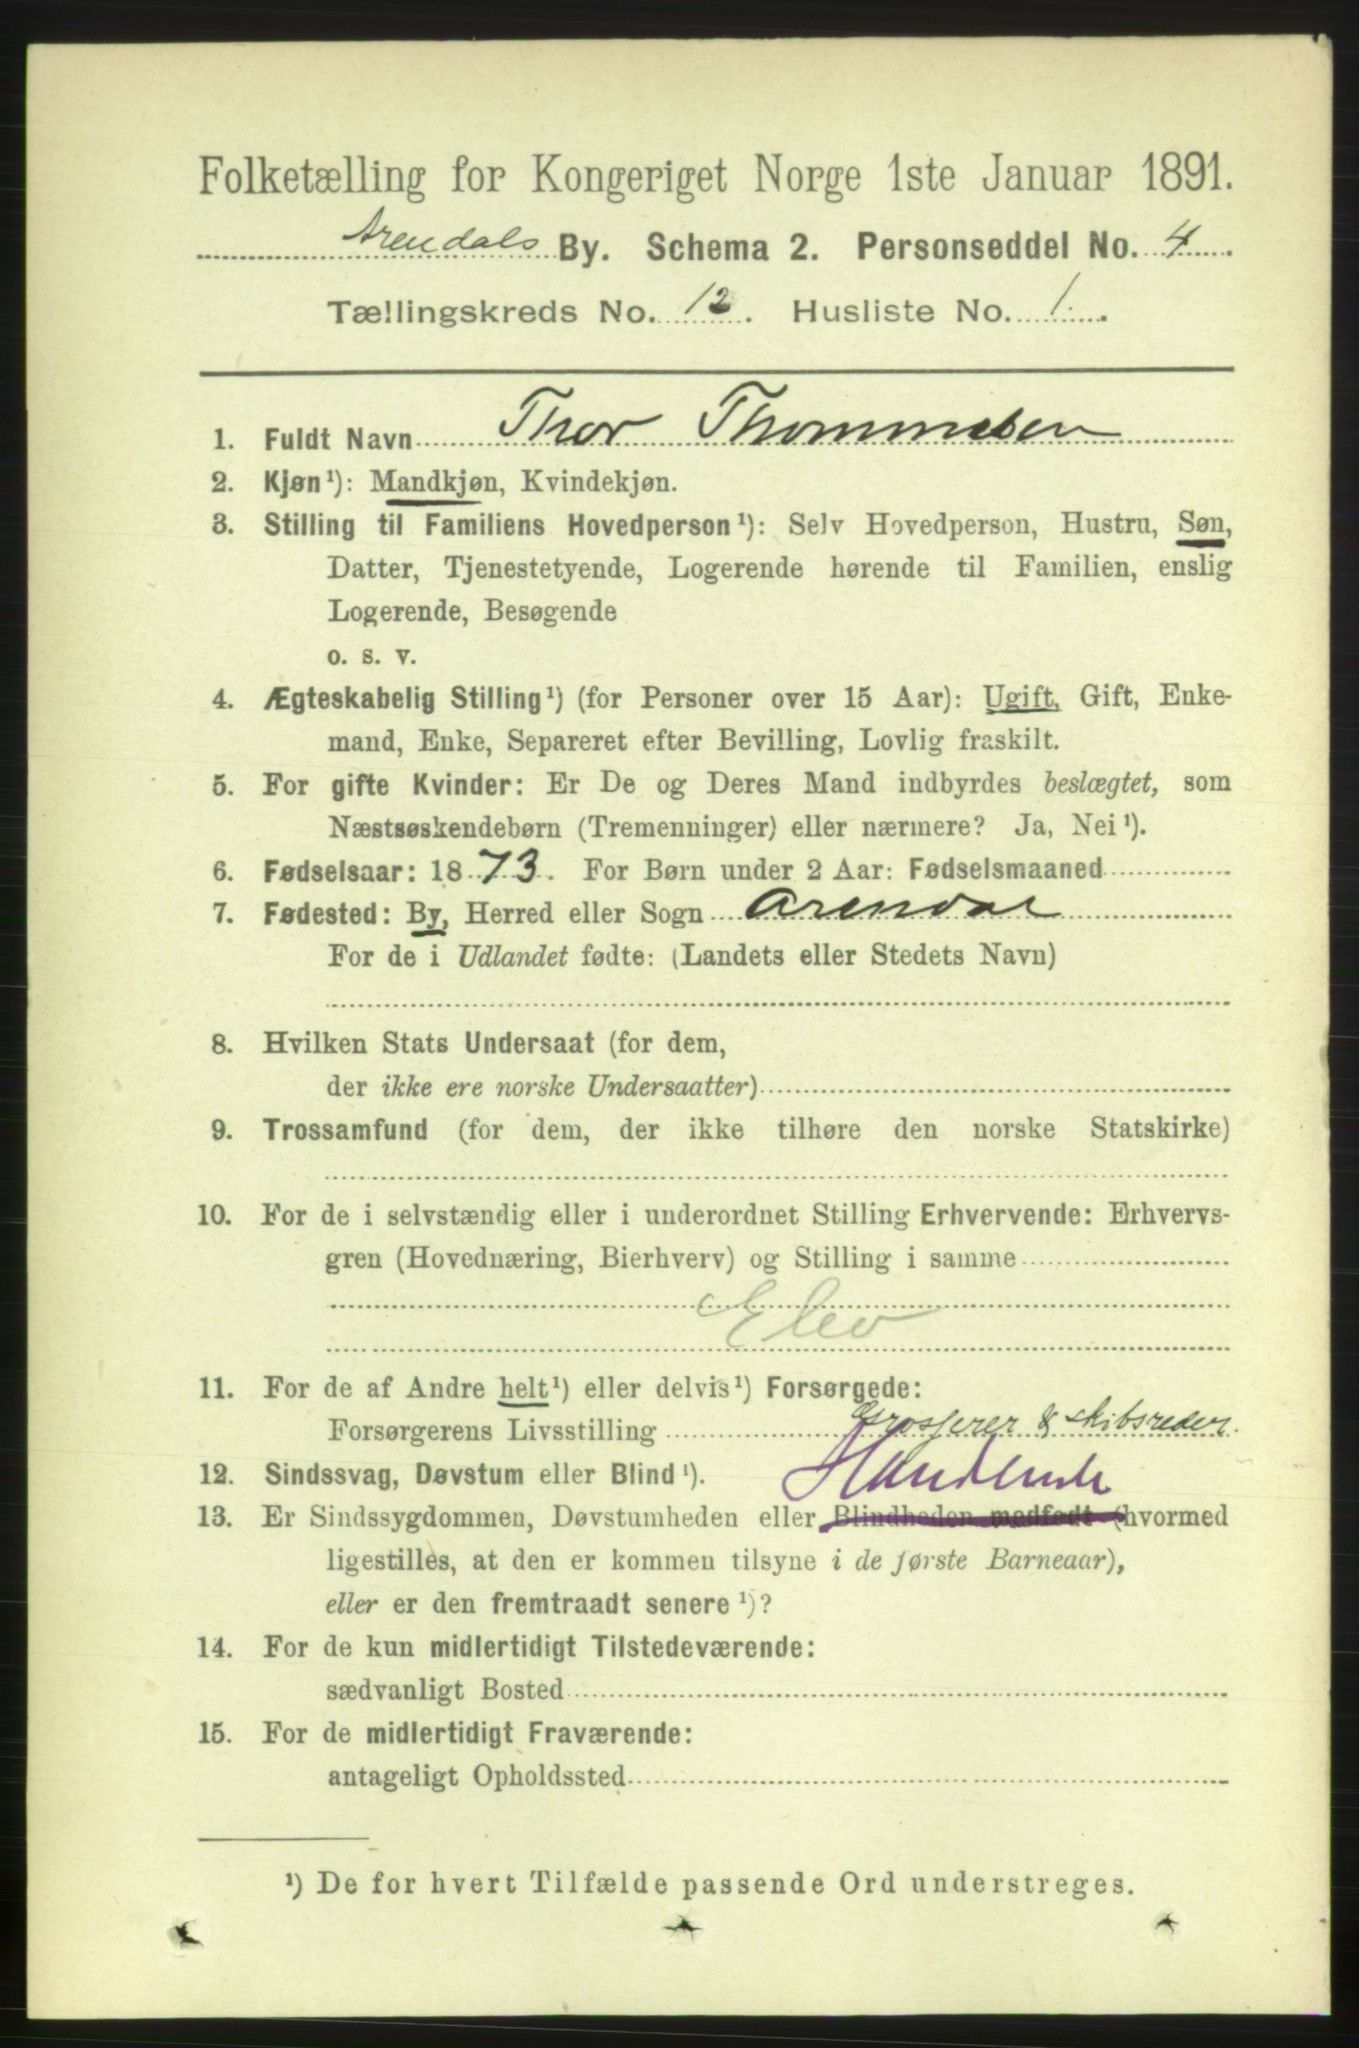 Folketælling for Kongeriget Norge 1ste Januar 1891.
Arendals By. Schema 2. Personseddel No. 4.
Tællingskreds No. 12. Husliste No. 1.
1. Fuldt Navn Thor Thommesen
2. Kjøn¹): Mandkjøn, Kvindekjøn.
3. Stilling til Familiens Hovedperson¹): Selv Hovedperson, Hustru, Søn,
Datter, Tjenestetyende, Logerende hørende til Familien, enslig
Logerende, Besøgende
o. s. v.
4. Ægteskabelig Stilling¹) (for Personer over 15 Aar): Ugift, Gift, Enke-
mand, Enke, Separeret efter Bevilling, Lovlig fraskilt.
5. For gifte Kvinder: Er De og Deres Mand indbyrdes beslægtet, som
Næstsøskendebørn (Tremenninger) eller nærmere? Ja, Nei¹).
6. Fødselsaar: 1873. For Børn under 2 Aar: Fødselsmaaned
7. Fødested: By, Herred eller Sogn Arendal
For de i Udlandet fødte: (Landets eller Stedets Navn)
8. Hvilken Stats Undersaat (for dem,
der ikke ere norske Undersaatter)
9. Trossamfund (for dem, der ikke tilhøre den norske Statskirke)
10. For de i selvstændig eller i underordnet Stilling Erhvervende: Erhvervs-
gren (Hovednæring, Bierhverv) og Stilling i samme
Elev
11. For de af Andre helt¹) eller delvis¹) Forsørgede:
Forsørgerens Livsstilling Grosserer & skibsreder.
12. Sindssvag, Døvstum eller Blind¹). Handlende
13. Er Sindssygdommen, Døvstumheden eller Blindheden medfødt (hvormed
ligestilles, at den er kommen tilsyne i de første Barneaar),
eller er den fremtraadt senere¹)?
14. For de kun midlertidigt Tilstedeværende:
sædvanligt Bosted
15. For de midlertidigt Fraværende:
antageligt Opholdssted
¹) De for hvert Tilfælde passende Ord understreges.